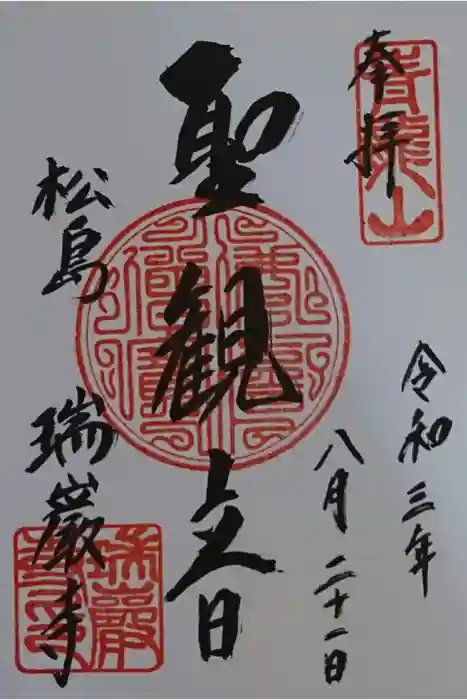 奉拝
青龍山
令和三年
八月二十一日
聖観音
松島
瑞巌寺